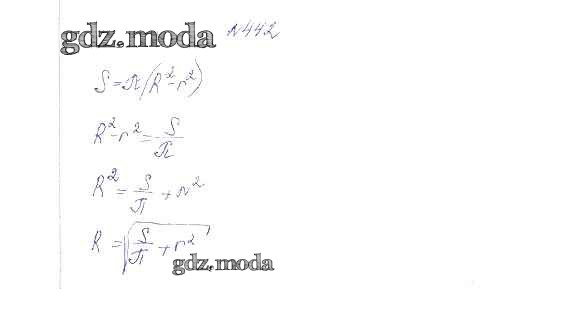 gdz.moda N442
S = π(R² - r²)
R² - r² = S/π
R² = S/π + r²
R = √(S/π + r²)
gdz.moda